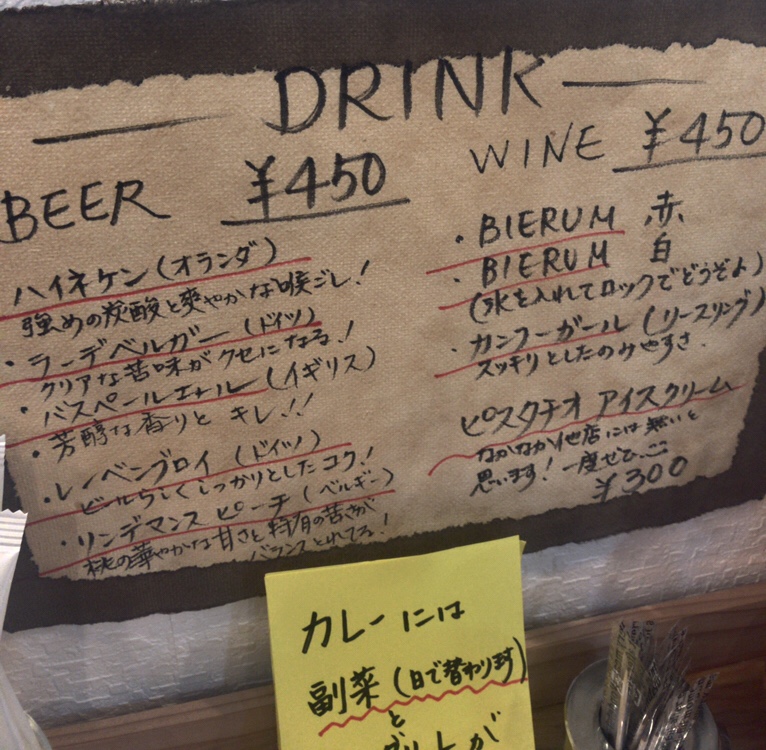 DRINK
BEER ¥450
ハイネケン(オランダ)
強めの炭酸と爽やかな喉ごし!
・ラーデベルガー(ドイツ)
クリアな苦味がクセになる!
・バスペールエール(イギリス)
・芳醇な香りと キレ!!
・レーベンブロイ(ドイツ)
ビールらしくしっかりとしたコク!
・リンデマンス ピーチ(ベルギー)
桃の華やかな甘さと特有の苦さが
バランスとれてる!
WINE ¥450
・BIERUM 赤
・BIERUM 白
(氷を入れてロックでどうぞよ)
・カンフーガール(リースリング)
スッキリとしたのみやすさ.
ピスタチオ アイスクリーム
なかなか他店には無いと
思います! 一度ぜひ
¥300
カレーには
副菜(日で替わります)
と
が